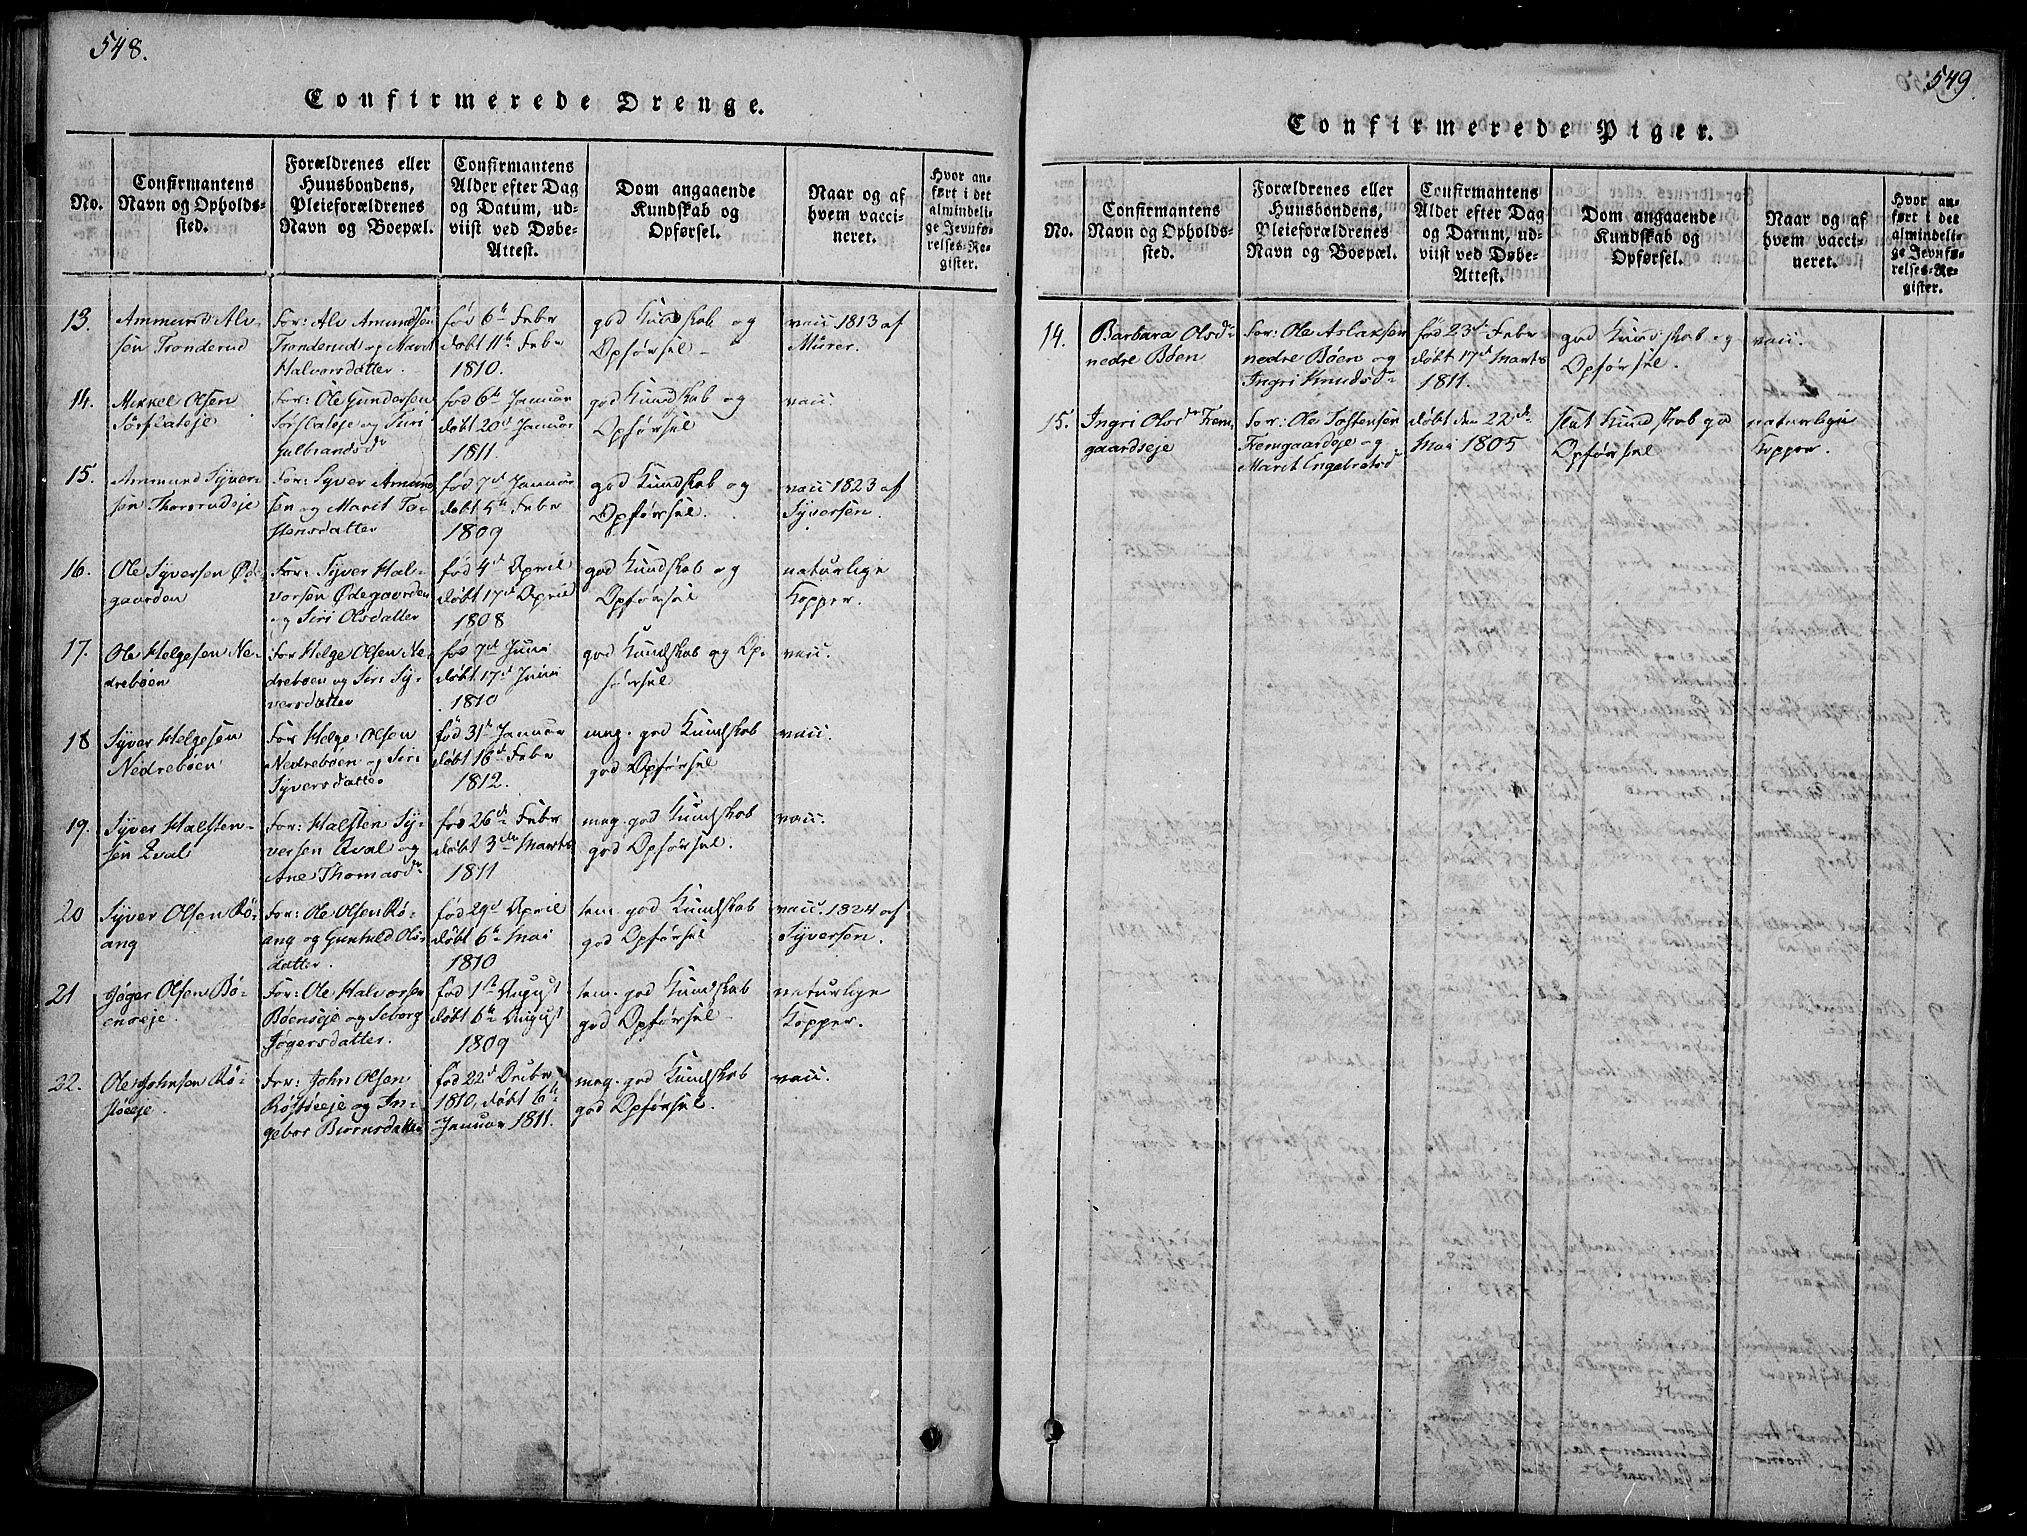 548.
Confirmerede Drenge.
No.
Confirmantens
Navn og Opholds-
sted.
Forældrenes eller
Huusbondens,
Pleieforældrenes
Navn og Boepæl.
Confirmantens
Alder efter Dag
og Datum, ud-
viist ved Døbe-
Attest.
Dom angaaende
Kundskab og
Opførsel.
Naar og af
hvem vacci-
neret.
Hvor an-
ført i det
almindeli-
ge Jevnfø-
relses-Re-
gister.
13.
Ammund Alv-
sen Tronderud
For: Alv Amundsen
Tronderud og Marit
Halvorsdatter.
fød 6te Febr
døbt 11te Febr
1810.
god Kundskab og
Opførsel
vacc 1813 af
Murer.
14.
Mikkel Olsen
Sørflateje
For: Ole Gundersen
Sørflateje og Siri
Gulbrandsdr
fød 6te Januar
døbt 20de Januar
1811.
god Kundskab og
Opførsel
vacc
15.
Ammund Syver-
sen Thorsrudeje
For: Syver Amund
sen og Marit To-
stensdatter
fød 7de Januar
døbt 5te Febr
1809
god Kundskab og
Opførsel.
vacc 1823 af
Syversen.
16.
Ole Syversen Øde-
gaarden
For: Syver Hal-
vorsen Ødegaarden
og Siri Olsdatter
fød 4de April
døbt 17de April
1808
god Kundskab og
Opførsel
naturlige
Kopper.
17.
Ole Helgesen Ne-
drebøen
For Helge Olsen Ne-
drebøen og Siri Sy-
versdatter
fød 7de Juni
døbt 17de Juni
1810
god Kundskab og Op-
førsel
vacc.
18
Syver Helgesen
Nedrebøen
For Helge Olsen
Nedrebøen og Siri
Syversdatter
fød 31te Januar
døbt 16de Febr
1812.
meg. god Kundskab
god Opførsel
vacc.
19.
Syver Halsten-
sen Eval
For: Halsten Sy-
versen Eval og
Ane Thomasdr
fød 26de Febr
døbt 3die Marts
1811
meg. god Kundskab
god Opførsel.
vacc.
20
Syver Olsen Rø-
ang
For: Ole Olsen Rø-
ang og Gunhuld Ols-
datter.
fød 29de April
døbt 6te Mai
1810
tem. god Kundskab
god Opførsel
vacc. 1824 af
Syversen.
21
Jøger Olsen Bø-
enseje.
For: Ole Halvorsen
Bøenseje og Seborg
Jøgersdatter.
fød 1ste August
døbt 6te August
1809
tem. god Kundskab
god Opførsel
naturlige
Kopper.
22.
Ole Johnsen Rø-
støeeje
For: John Olsen
Røstøeeje og In-
gebor Biørnsdatter
fød 22de Decbr
1810, døbt 6te
Januar 1811.
meg. god Kundskab
god Opførsel.
vacc.
549.
Confirmerede Piger.
No.
Confirmantens
Navn og Opholds-
sted.
Forældrenes eller
Huusbondens,
Pleieforældrenes
Navn og Boepæl.
Confirmantens
Alder efter Dag
og Datum, ud-
viist ved Døbe-
Attest.
Dom angaaende
Kundskab og
Opførsel.
Naar og af
hvem vacci-
neret.
Hvor an-
ført i det
almindeli-
ge Jevnfø-
relses-Re-
gister.
14.
Barbara Olsdr
nedre Bøen
For: Ole Aslaksen
nedre Bøen og
Ingri Knudsdr
fød 23de Febr
døbt 17de Marts
1811.
god Kundskab og
Opførsel.
vacc.
15.
Ingri Olsdr Frem
gaardseje
For: Ole Tostensen
Fremgaardeje og
Marit Engebretsdr
døbt den 22de
Mai 1805
slet Kundskab go
Opførsel
naturlige
Kopper.